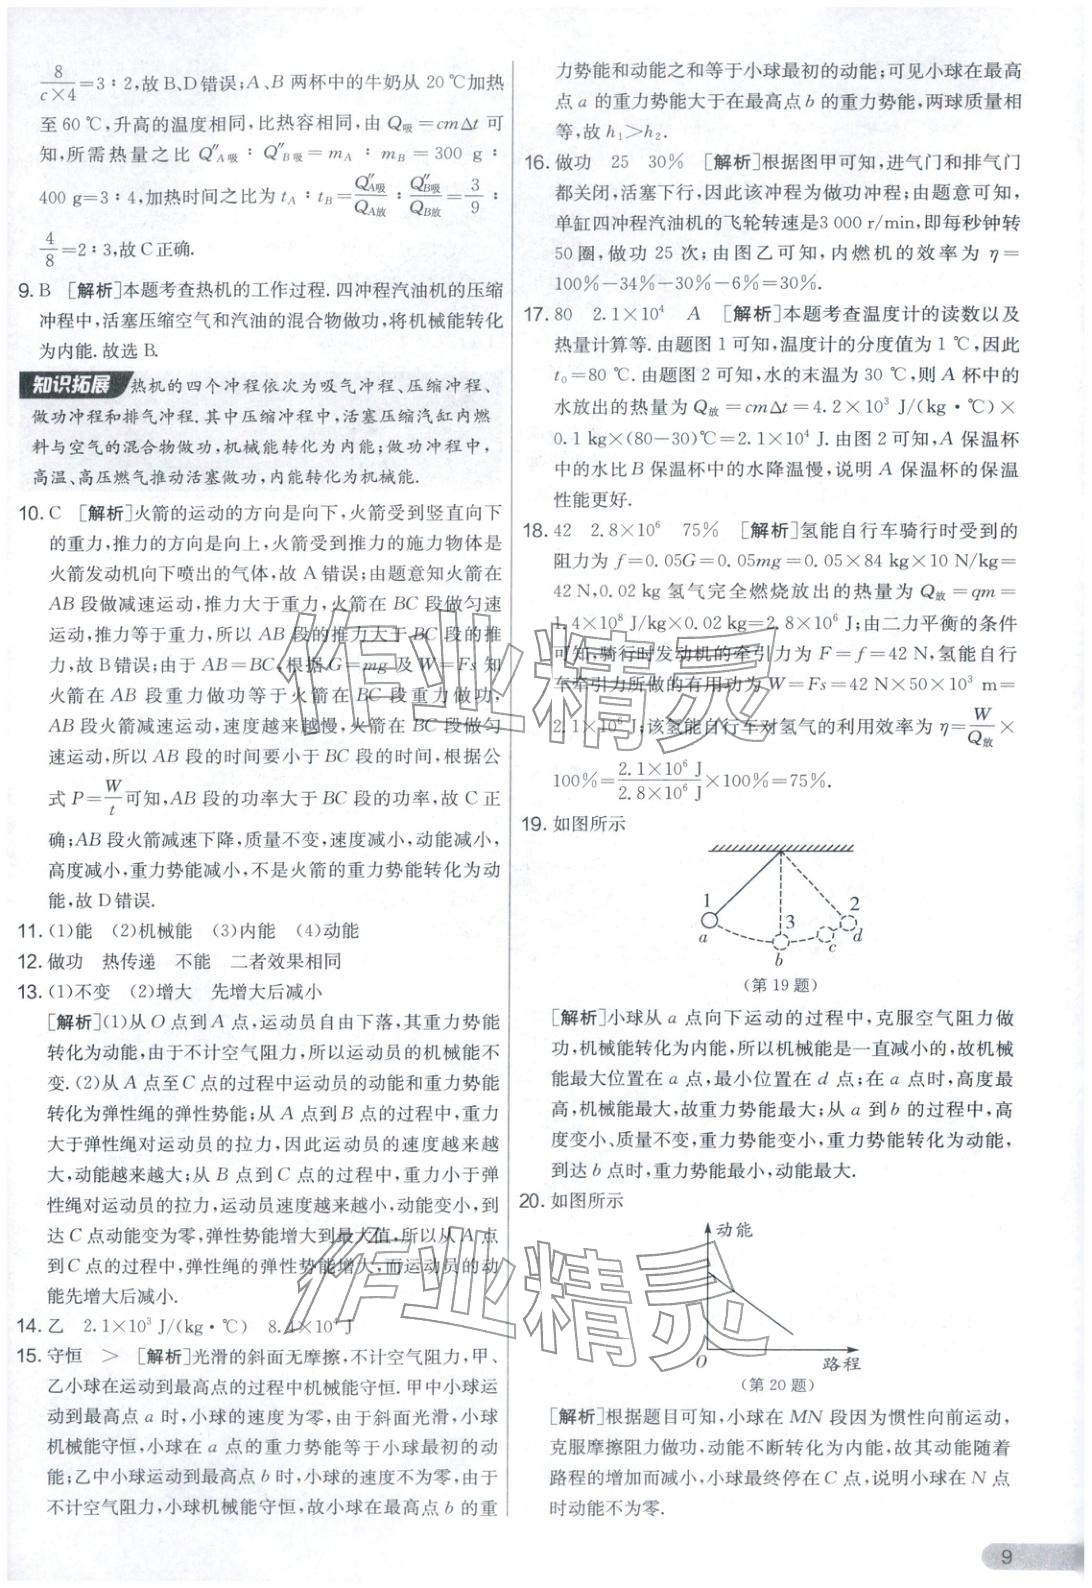 8/(c×4)=3∶2,故B、D错误;A、B 两杯中的牛奶从 20 ℃加热
至60 ℃,升高的温度相同,比热容相同,由 Q吸=cmΔt 可
知,所需热量之比 Q″A吸∶Q″B吸=mA∶mB=300 g∶
400 g=3∶4,加热时间之比为 tA∶tB=Q″A吸/QA放∶Q″B吸/QB放=3/9∶
4/8=2∶3,故C正确.
9. B [解析]本题考查热机的工作过程.四冲程汽油机的压缩
冲程中,活塞压缩空气和汽油的混合物做功,将机械能转化
为内能.故选B.
知识拓展 热机的四个冲程依次为吸气冲程、压缩冲程、
做功冲程和排气冲程.其中压缩冲程中,活塞压缩汽缸内燃
料与空气的混合物做功,机械能转化为内能;做功冲程中,
高温、高压燃气推动活塞做功,内能转化为机械能.
10. C [解析]火箭的运动的方向是向下,火箭受到竖直向下
的重力,推力的方向是向上,火箭受到推力的施力物体是
火箭发动机向下喷出的气体,故A错误;由题意知火箭在
AB段做减速运动,推力大于重力,火箭在 BC 段做匀速
运动,推力等于重力,所以 AB 段的推力大于 BC 段的推
力,故B错误;由于AB=BC,根据G=mg及W=Fs知
火箭在 AB 段重力做功等于火箭在 BC 段重力做功,
AB段火箭减速运动,速度越来越慢,火箭在 BC 段做匀
速运动,所以 AB 段的时间要小于 BC 段的时间,根据公
式 P=W/t可知,AB段的功率大于BC段的功率,故C正
确;AB段火箭减速下降,质量不变,速度减小,动能减小,
高度减小,重力势能减小,不是火箭的重力势能转化为动
能,故D错误.
11. (1)能 (2)机械能 (3)内能 (4)动能
12. 做功 热传递 不能 二者效果相同
13. (1)不变 (2)增大 先增大后减小
[解析](1)从O点到A点,运动员自由下落,其重力势能
转化为动能,由于不计空气阻力,所以运动员的机械能不
变.(2)从A点至C点的过程中运动员的动能和重力势能
转化为弹性绳的弹性势能;从 A 点到B点的过程中,重力
大于弹性绳对运动员的拉力,因此运动员的速度越来越
大,动能越来越大;从 B 点到C点的过程中,重力小于弹
性绳对运动员的拉力,运动员速度越来越小,动能变小,到
达C点动能变为零,弹性势能增大到最大值,所以从A点
到C点的过程中,弹性绳的弹性势能增大,而运动员的动
能先增大后减小.
14. 乙 2.1×10³ J/(kg·℃) 8.4×10⁴ J
15. 守恒 > [解析]光滑的斜面无摩擦,不计空气阻力,甲、
乙小球在运动到最高点的过程中机械能守恒.甲中小球运
动到最高点 a 时,小球的速度为零,由于斜面光滑,小球
机械能守恒,小球在 a 点的重力势能等于小球最初的动
能;乙中小球运动到最高点b时,小球的速度不为零,由于
不计空气阻力,小球机械能守恒,故小球在最高点 b 的重
力势能和动能之和等于小球最初的动能;可见小球在最高
点 a 的重力势能大于在最高点 b 的重力势能,两球质量相
等,故 h₁>h₂.
16. 做功 25 30% [解析]根据图甲可知,进气门和排气门
都关闭,活塞下行,因此该冲程为做功冲程;由题意可知,
单缸四冲程汽油机的飞轮转速是3 000 r/min,即每秒钟转
50圈,做功 25 次;由图乙可知,内燃机的效率为 η=
100%-34%-30%-6%=30%.
17. 80 2.1×10⁴ A [解析]本题考查温度计的读数以及
热量计算等.由题图1可知,温度计的分度值为1 ℃,因此
t₀=80 ℃.由题图2可知,水的末温为 30 ℃,则 A 杯中的
水放出的热量为 Q放=cmΔt=4.2×10³ J/(kg·℃)×
0.1 kg×(80-30)℃=2.1×10⁴ J.由图2可知,A保温杯
中的水比B保温杯中的水降温慢,说明 A 保温杯的保温
性能更好.
18. 42 2.8×10⁶ 75% [解析]氢能自行车骑行时受到的
阻力为 f=0.05G=0.05mg=0.05×84 kg×10 N/kg=
42 N,0.02 kg 氢气完全燃烧放出的热量为 Q放=qm=
1.4×10⁸ J/kg×0.02 kg=2.8×10⁶ J;由二力平衡的条件
可知,骑行时发动机的牵引力为 F=f=42 N,氢能自行
车牵引力所做的有用功为 W=Fs=42 N×50×10³ m=
2.1×10⁶ J;该氢能自行车对氢气的利用效率为 η=W/Q放×
100%=(2.1×10⁶ J)/(2.8×10⁶ J)×100%=75%.
19. 如图所示
1
2
3
a
b
c
d
(第19题)
[解析]小球从 a 点向下运动的过程中,克服空气阻力做
功,机械能转化为内能,所以机械能是一直减小的,故机械
能最大位置在 a 点,最小位置在 d 点;在 a 点时,高度最
高,机械能最大,故重力势能最大;从a 到b 的过程中,高
度变小、质量不变,重力势能变小,重力势能转化为动能,
到达 b 点时,重力势能最小,动能最大.
20. 如图所示
动能
O
路程
(第20题)
[解析]根据题目可知,小球在 MN 段因为惯性向前运动,
克服摩擦阻力做功,动能不断转化为内能,故其动能随着
路程的增加而减小,小球最终停在C点,说明小球在 N 点
时动能不为零.
作业精灵
作业精灵
9